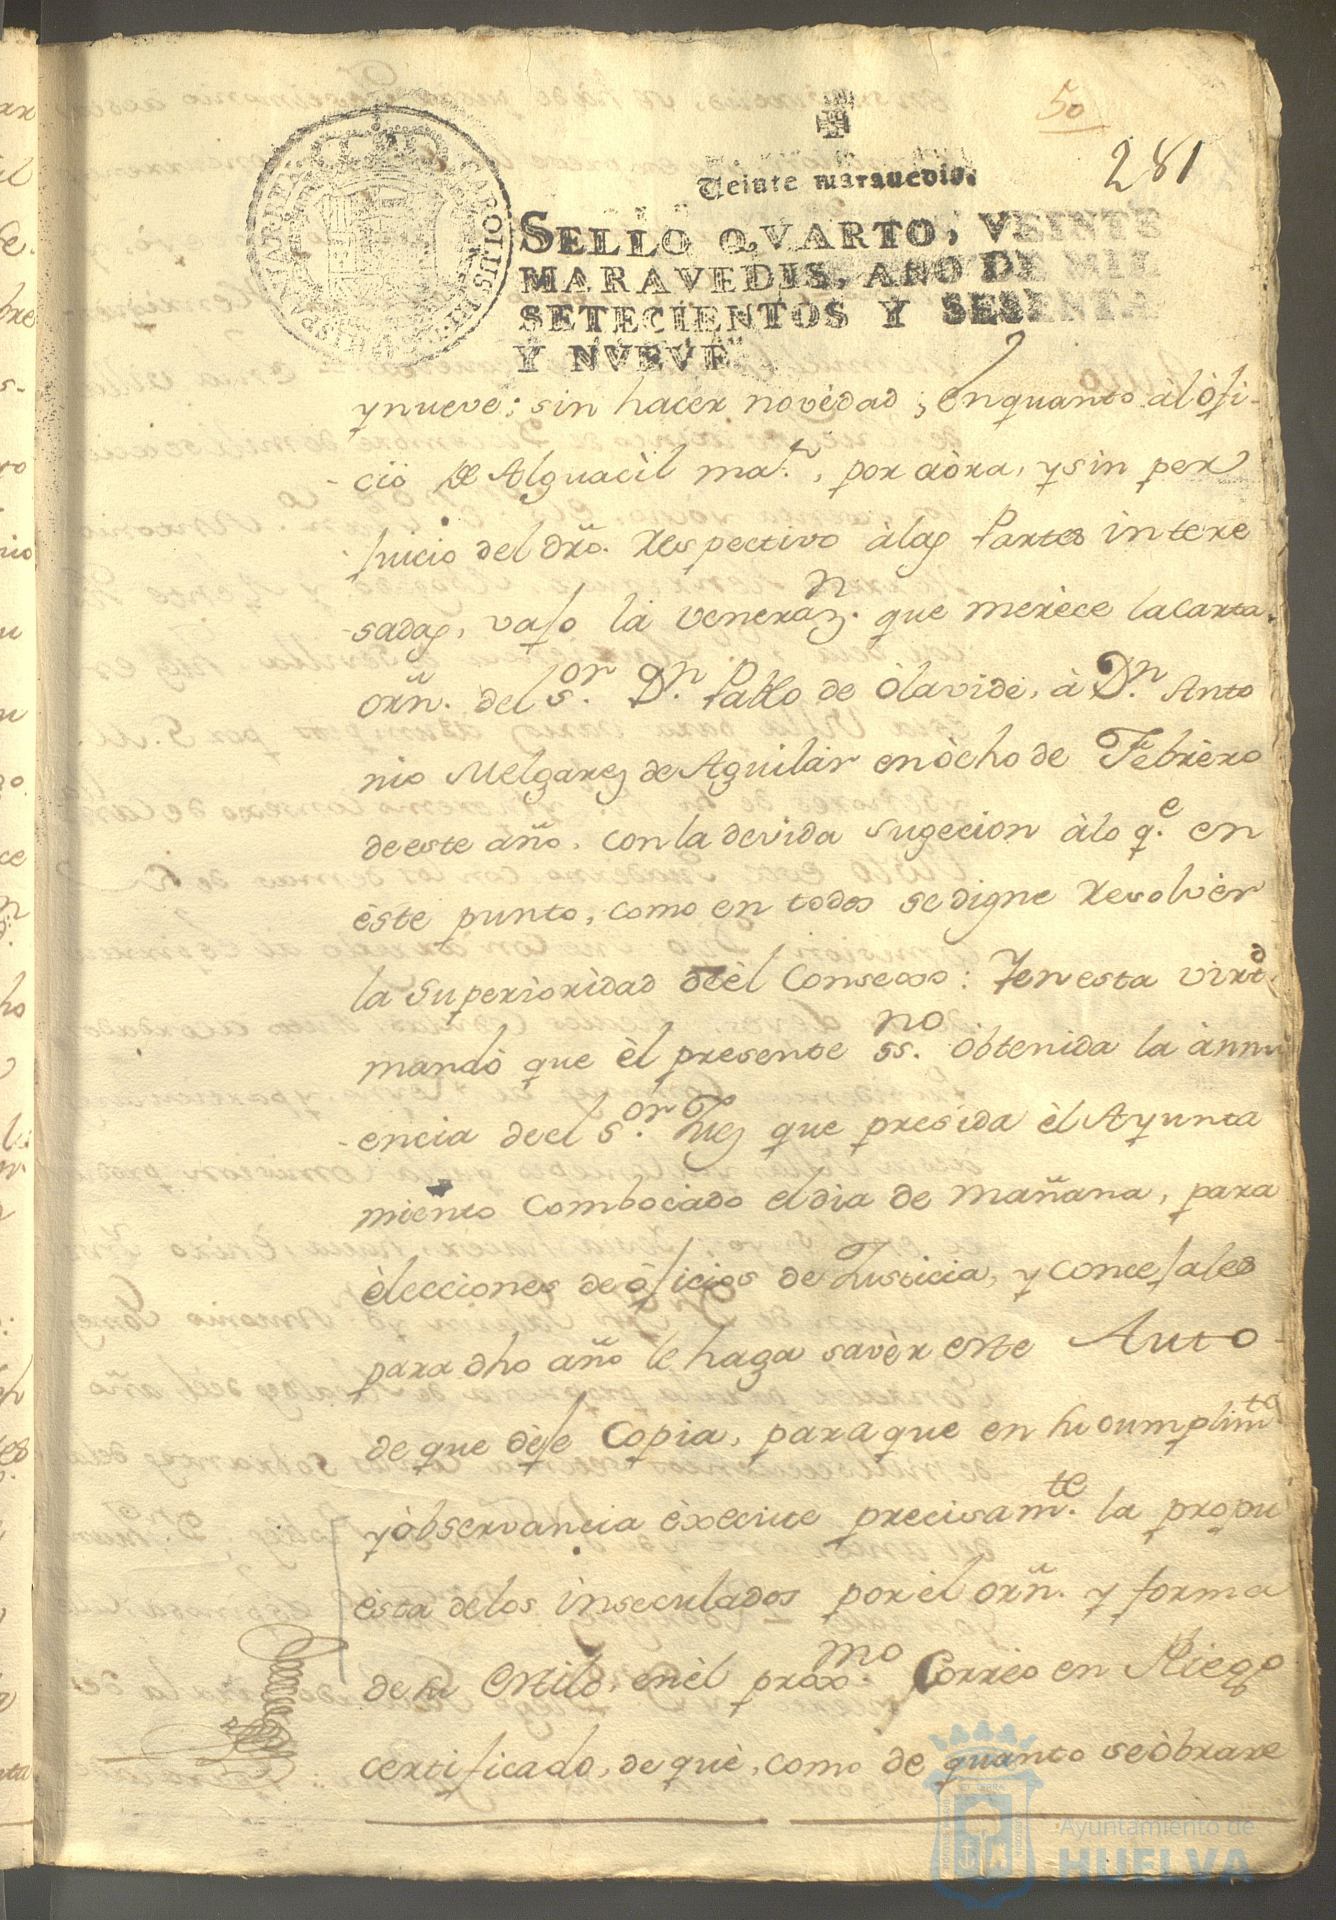 50
281
Veinte marauedis.
SELLO QVARTO, VEINTE
MARAVEDIS, AÑO DE MIL
SETECIENTOS Y SESENTA
Y NVEVE.
ynueve; sin hacer novèdad, enquanto àl òfi-
ciö de Alguacìl ma.r, por aòra, y sin per
juicio del dr̃o. Respectivo àlas Partes intere
sadas, vajo la veneraz.n que merèce la carta
orñ. del s.or D.n Pablo de Olavide, à D.n Anto
nio Melgarez de Aguilàr en òcho de Febrèro
de este año, con la devida sugecion àlo q.e en
èste punto, como en todos se digne Resolvèr
la Superioridàd de èl Consexo: Y en esta virt.d
mandò que èl presente ss.no òbtenida la ànnu
encia de el s.or Juez que presida èl Ayunta
miento combocado el dia de mañana, para
èlecciones de òficios de Justicia, y concejales
para dho año le haga savèr este Auto
de que dèje Copia, para que en su cumplim.to
y òbservancia èxecute precisam.te la propu
èsta de los inseculados por èl orñ. y forma
de su estilo, en èl prox.mo Correo en Pliego
certificado, de què, como de quanto se òbrare
Ayuntamiento de
HUELVA